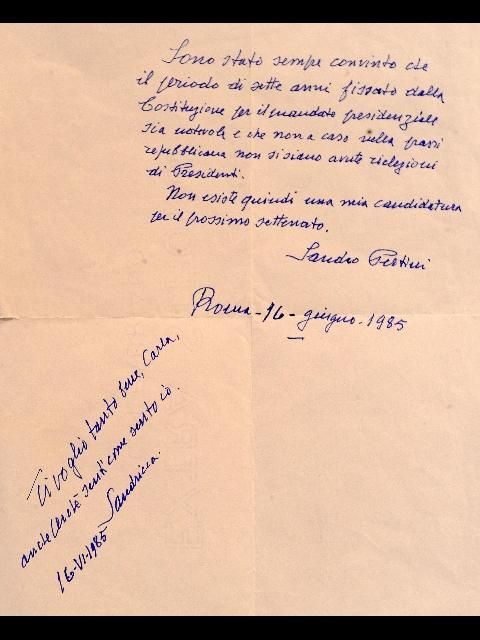 Sono stato sempre convinto che
il periodo di sette anni fissato dalla
Costituzione per il mandato presidenziale
sia notevole e che non a caso nella prassi
repubblicana non si siano avute rielezioni
di Presidenti.
Non esiste quindi una mia candidatura
per il prossimo settennato.
Sandro Pertini
Roma - 16 - giugno. 1985
Ti voglio tanto bene, Carla,
anche perchè senti come sento io.
Sandrino.
16-VI-1985